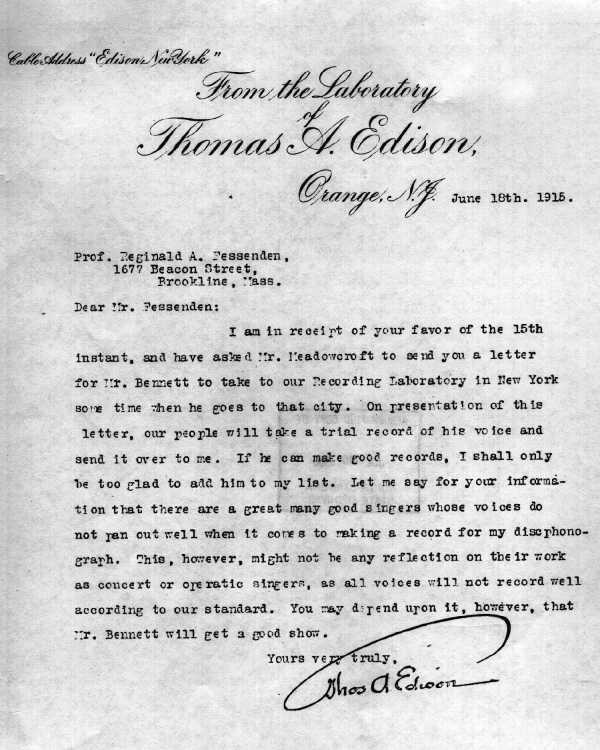 Cable Address "Edison, New York"
From the Laboratory
of
Thomas A. Edison,
Orange, N.J. June 18th. 1915.
Prof. Reginald A. Fessenden,
1677 Beacon Street,
Brookline, Mass.
Dear Mr. Fessenden:
I am in receipt of your favor of the 15th
instant, and have asked Mr. Meadowcroft to send you a letter
for Mr. Bennett to take to our Recording Laboratory in New York
some time when he goes to that city. On presentation of this
letter, our people will take a trial record of his voice and
send it over to me. If he can make good records, I shall only
be too glad to add him to my list. Let me say for your informa-
tion that there are a great many good singers whose voices do
not pan out well when it comes to making a record for my discphono-
graph. This, however, might not be any reflection on their work
as concert or operatic singers, as all voices will not record well
according to our standard. You may depend upon it, however, that
Mr. Bennett will get a good show.
Yours very truly,
Thos A Edison